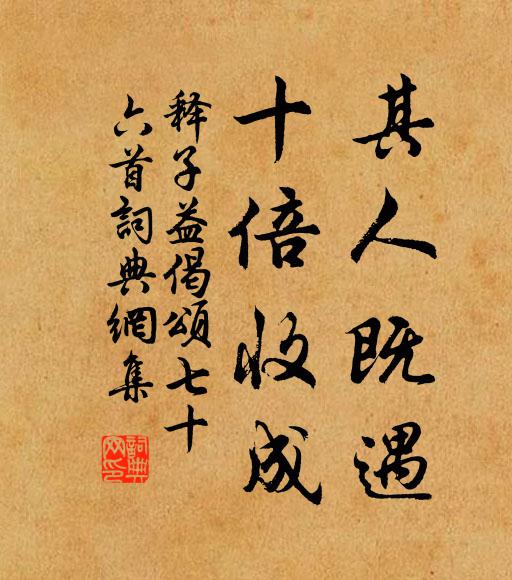 其人既遇
十倍收成
释子益偈頌七十
六首詞典網集
詞典网印